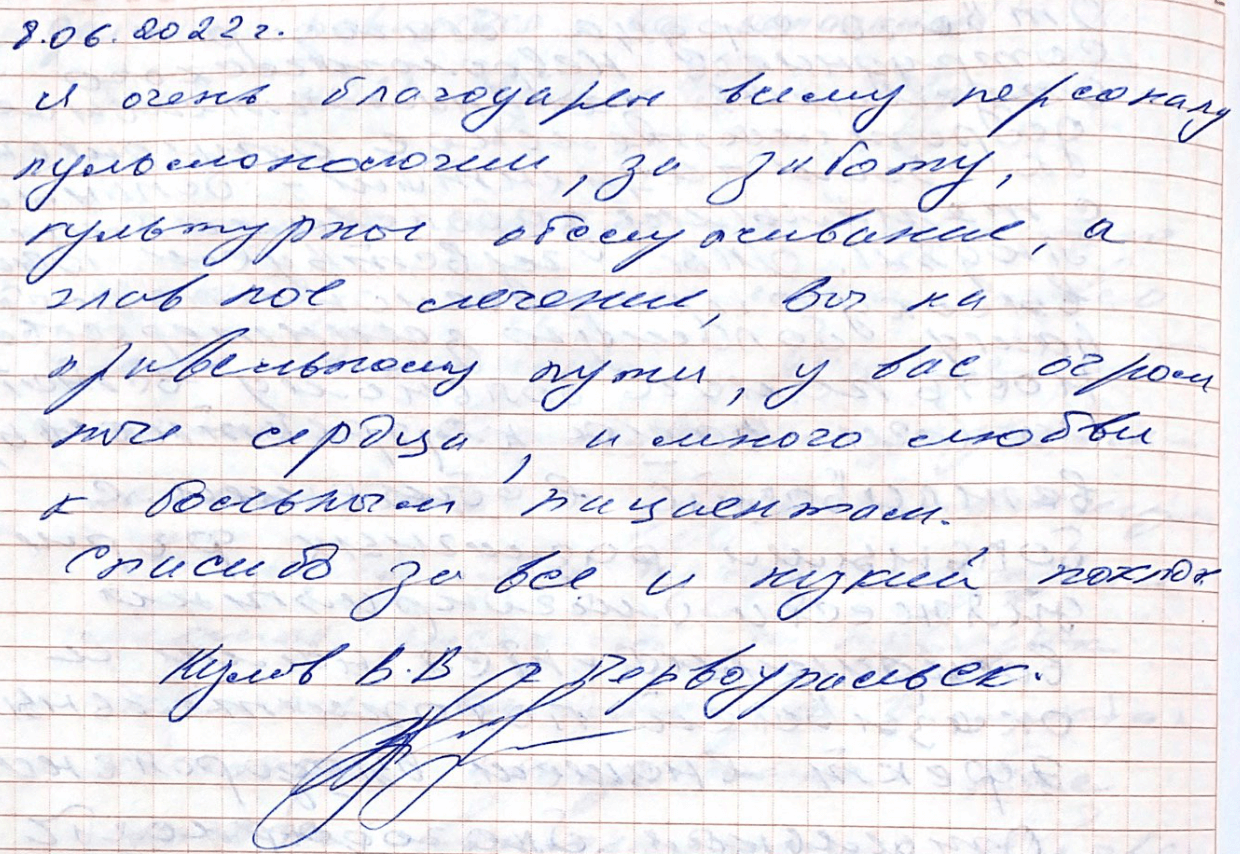 8.06.2022 г.
я очень благодарен всему персоналу
пульмонологии, за заботу,
культурное обслуживание, а
главное лечение, вы на
правельному пути, у вас огром
ные сердца, и много любви
к больным пациентам.
Спасибо за все и низкий поклон
В.В г Первоуральск.